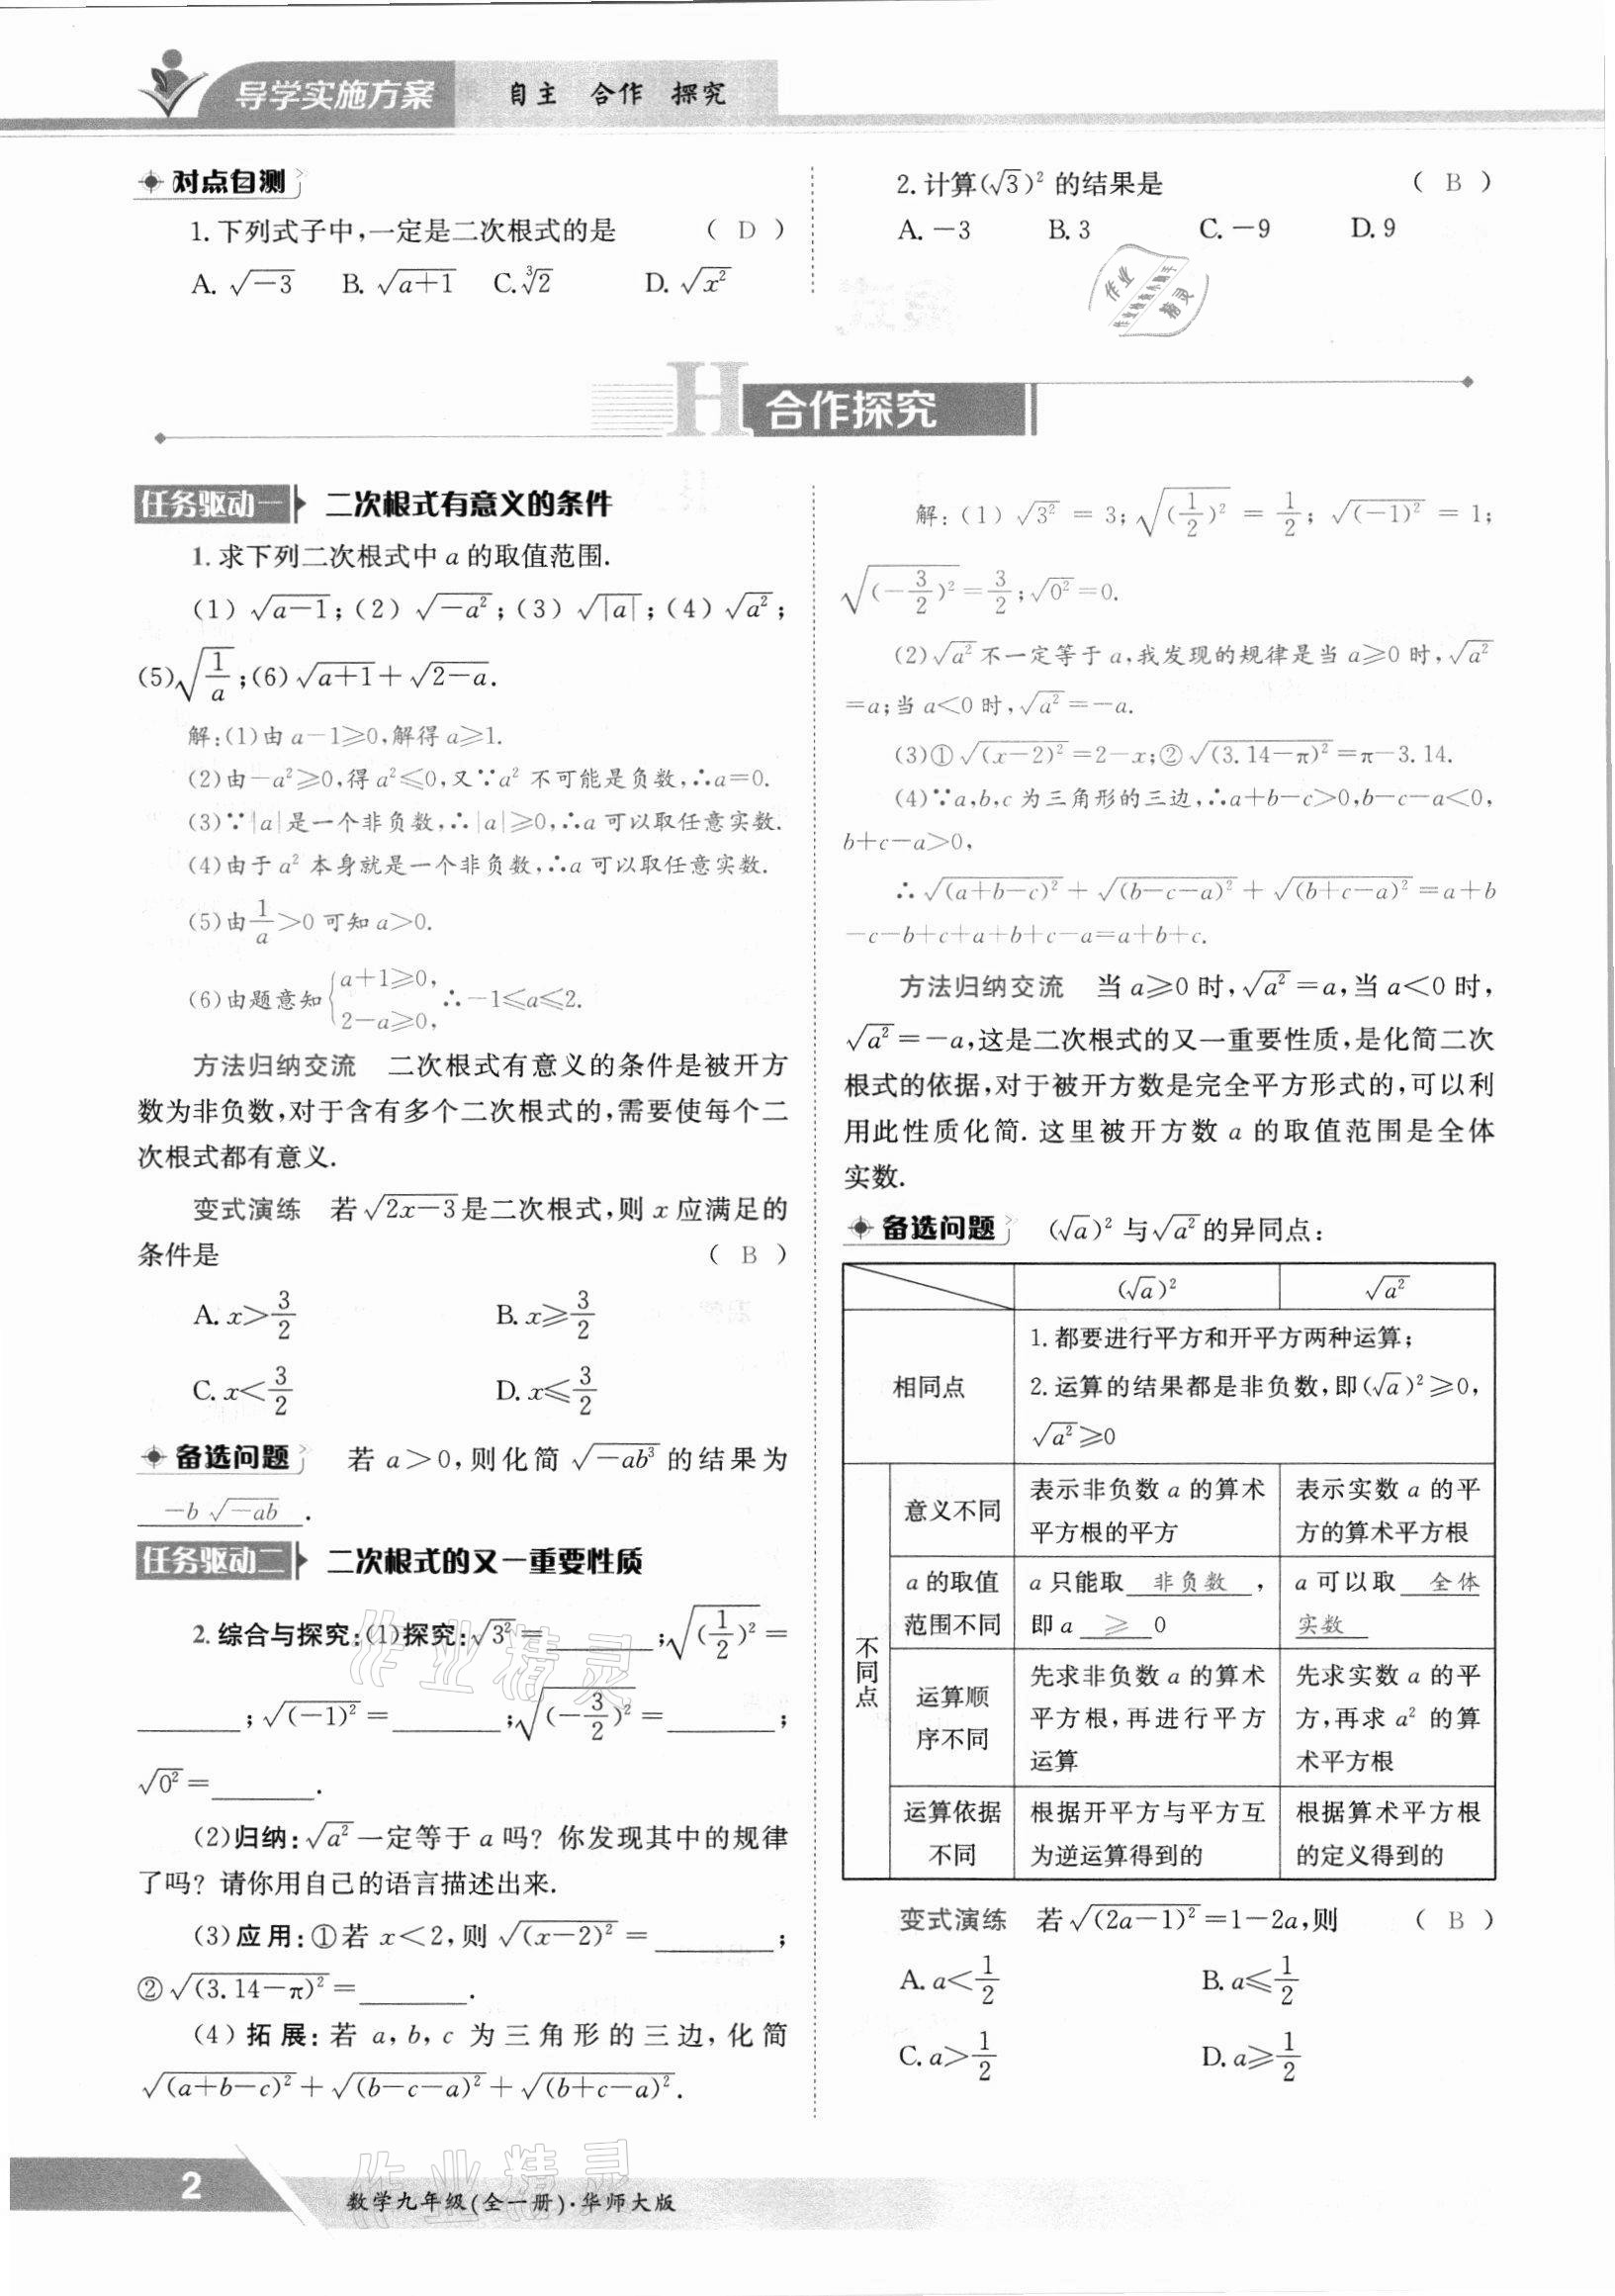 导学实施方案 自主 合作 探究
对点自测
1.下列式子中,一定是二次根式的是 ( D )
A. √(-3) B. √(a+1) C. ∛2 D. √(x²)
2.计算(√3)² 的结果是 ( B )
A. -3 B. 3 C. -9 D. 9
作业
作业检查小助手
精灵
H 合作探究
任务驱动一 二次根式有意义的条件
1.求下列二次根式中 a 的取值范围.
(1) √(a-1);(2) √(-a²);(3) √|a|;(4) √(a²);
(5)√(1/a);(6)√(a+1)+√(2-a).
解:(1)由 a-1≥0,解得 a≥1.
(2)由-a²≥0,得 a²≤0,又∵a² 不可能是负数,∴a=0.
(3)∵|a|是一个非负数,∴|a|≥0,∴a 可以取任意实数.
(4)由于 a² 本身就是一个非负数,∴a 可以取任意实数.
(5)由1/a>0 可知 a>0.
(6)由题意知{a+1≥0, 2-a≥0, ∴-1≤a≤2.
方法归纳交流 二次根式有意义的条件是被开方
数为非负数,对于含有多个二次根式的,需要使每个二
次根式都有意义.
变式演练 若√(2x-3)是二次根式,则 x 应满足的
条件是 ( B )
A. x>3/2 B. x≥3/2
C. x<3/2 D. x≤3/2
备选问题 若 a>0,则化简 √(-ab³) 的结果为
-b √(-ab) .
任务驱动二 二次根式的又一重要性质
2.综合与探究:(1)探究:√(3²)=______;√((1/2)²)=
______;√((-1)²)=______;√((-3/2)²)=______;
√(0²)=______.
(2)归纳:√(a²)一定等于 a 吗? 你发现其中的规律
了吗? 请你用自己的语言描述出来.
(3)应用:①若 x<2,则 √((x-2)²)=______;
②√((3.14-π)²)=______.
(4)拓展:若 a,b,c 为三角形的三边,化简
√((a+b-c)²)+√((b-c-a)²)+√((b+c-a)²).
解:(1) √(3²)=3;√((1/2)²)=1/2;√((-1)²)=1;
√((-3/2)²)=3/2;√(0²)=0.
(2)√(a²)不一定等于 a,我发现的规律是当 a≥0 时,√(a²)
=a;当 a<0 时,√(a²)=-a.
(3)①√((x-2)²)=2-x;②√((3.14-π)²)=π-3.14.
(4)∵a,b,c 为三角形的三边,∴a+b-c>0,b-c-a<0,
b+c-a>0,
∴√((a+b-c)²)+√((b-c-a)²)+√((b+c-a)²)=a+b
-c-b+c+a+b+c-a=a+b+c.
方法归纳交流 当 a≥0 时,√(a²)=a,当 a<0 时,
√(a²)=-a,这是二次根式的又一重要性质,是化简二次
根式的依据,对于被开方数是完全平方形式的,可以利
用此性质化简. 这里被开方数 a 的取值范围是全体
实数.
备选问题 (√a)² 与√(a²)的异同点:
(√a)² √(a²)
相同点
1.都要进行平方和开平方两种运算;
2.运算的结果都是非负数,即(√a)²≥0,
√(a²)≥0
不同点
意义不同
表示非负数 a 的算术
平方根的平方
表示实数 a 的平
方的算术平方根
a 的取值
范围不同
a 只能取 非负数 ,
即 a ≥ 0
a 可以取 全体
实数
运算顺
序不同
先求非负数 a 的算术
平方根,再进行平方
运算
先求实数 a 的平
方,再求 a² 的算
术平方根
运算依据
不同
根据开平方与平方互
为逆运算得到的
根据算术平方根
的定义得到的
变式演练 若√((2a-1)²)=1-2a,则 ( B )
A. a<1/2 B. a≤1/2
C. a>1/2 D. a≥1/2
作业精灵
作业精灵
2 数学九年级(全一册)·华师大版